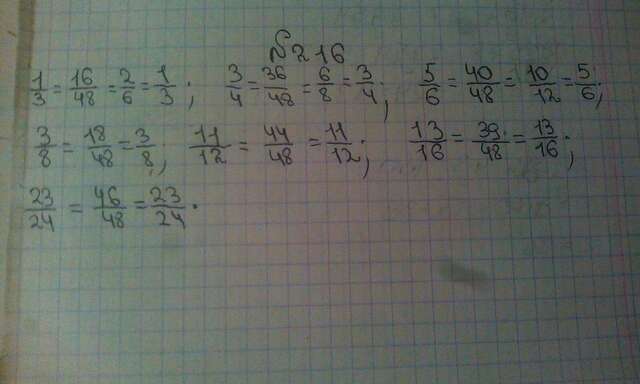 №216
1/3 = 16/48 = 2/6 = 1/3; 3/4 = 36/48 = 6/8 = 3/4; 5/6 = 40/48 = 10/12 = 5/6;
3/8 = 18/48 = 3/8; 11/12 = 44/48 = 11/12; 13/16 = 39/48 = 13/16;
23/24 = 46/48 = 23/24.